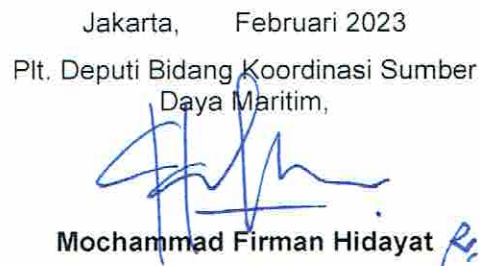 Jakarta, Februari 2023
Plt. Deputi Bidang Koordinasi Sumber
Daya Maritim,
Mochammad Firman Hidayat